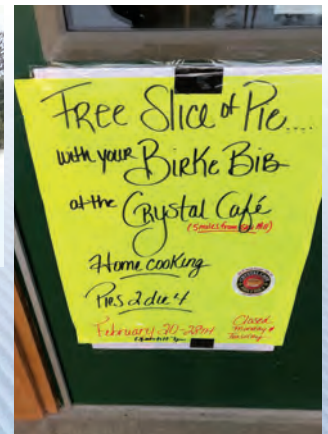 Free Slice of Pie....
with your Birke Bib
at the Crystal Café
Home cooking
Pies 2 die 4
February 20-28th
Closed
Monday &
Tuesday